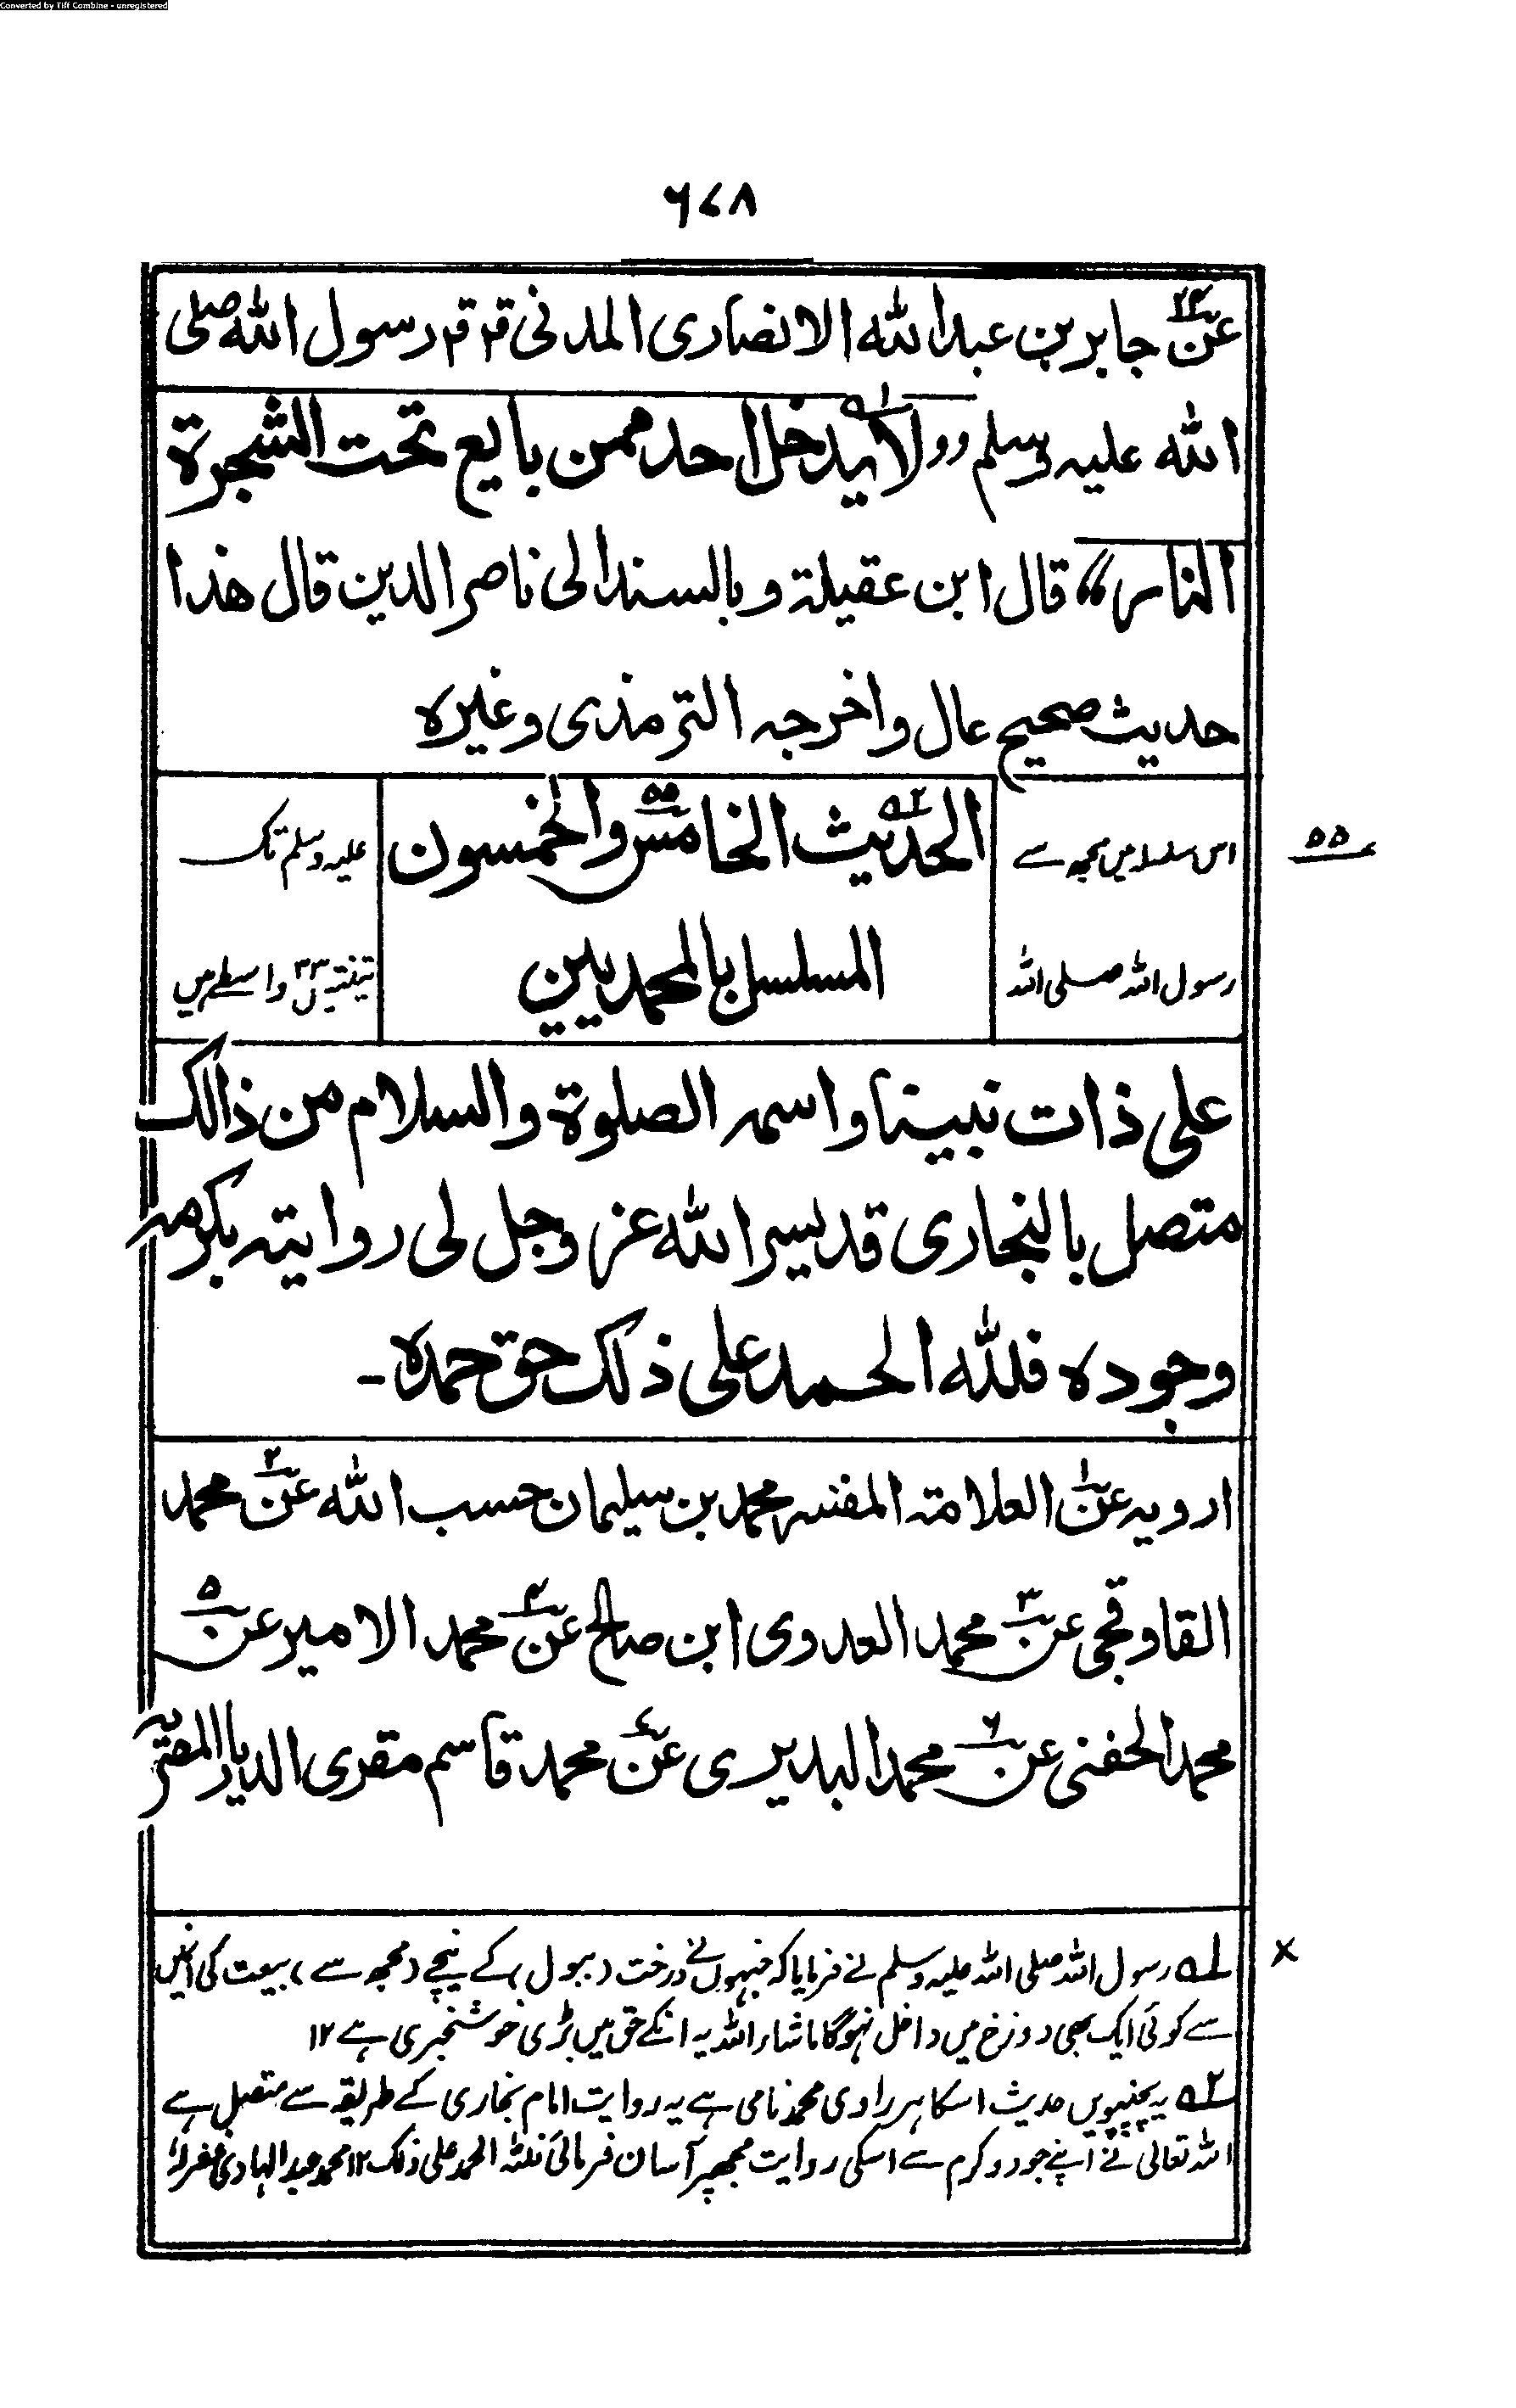 Converted by Tiff Combine - unregistered
۶۷۸
عن جابر بن عبد الله الانصاری المدنی قال قال رسول الله صلی
الله علیہ وسلم ”لا یدخل احد ممن بایع تحت الشجرة
النار“ قال ابن عقیلة وبالسند الی ناصر الدین قال هذا
حدیث صحیح عال واخرجہ الترمذی وغیره
اس سلسلہ میں مجھ سے
رسول اللہ صلی اللہ
الحدیث الخامس والخمسون
المسلسل بالمحمدیین
علیہ وسلم تک
تینتیس ۳۳ واسطے ہیں
۵۵
علی ذات نبینا واسمہ الصلوة والسلام من ذالک
متصل بالبخاری قد یسر الله عز وجل لی روایتہ بکرمہ
وجوده فلله الحمد علی ذلک حق حمده۔
ارویہ عن العلامة المفسر محمد بن سلیمان حسب الله عن ۲ محمد
القاوقجی عن ۳ محمد العدوی ابن صالح عن ۴ محمد الامیر عن ۵
محمد الحفنی عن ۶ محمد البدیری عن ۷ محمد قاسم مقری الدیار المصریہ
۱؎ رسول اللہ صلی اللہ علیہ وسلم نے فرمایا کہ جنہوں نے درخت (ببول) کے نیچے (مجھ سے) بیعت کی انمیں
سے کوئی ایک بھی دوزخ میں داخل نہوگا ماشاء اللہ یہ انکے حق میں بڑی خوشخبری ہے ۱۲
۲؎ یہ پچپنویں حدیث اسکا ہر راوی محمد نامی ہے یہ روایت امام بخاری کے طریقہ سے متصل ہے
اللہ تعالی نے اپنے جود و کرم سے اسکی روایت مجھپر آسان فرمائی فللہ الحمد علی ذلک ۱۲ محمد عبد الہادی غفرلہ